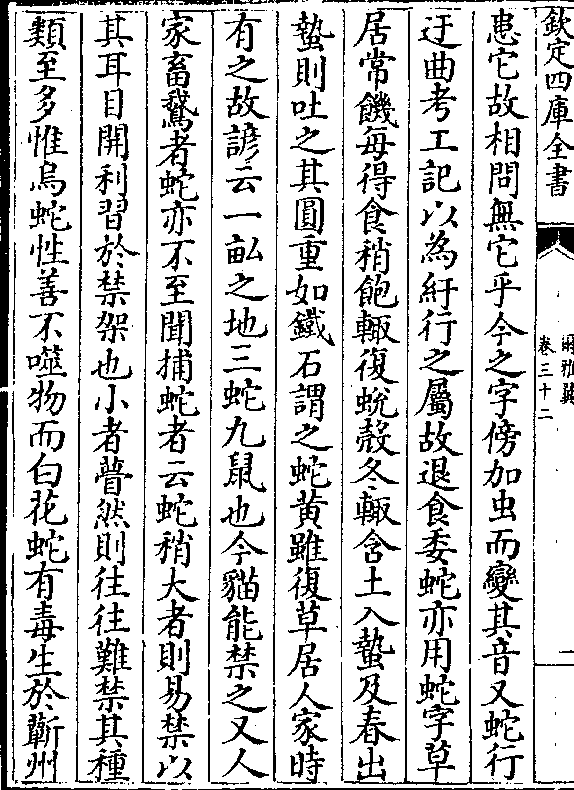 欽定四庫全書
爾雅翼
卷三十二
一
患它故相問無它乎今之字傍加虫而變其音又蛇行
迂曲考工記以為紆行之屬故退食委蛇亦用蛇字草
居常饑每得食稍飽輒復蛻殼冬輒含土入蟄及春出
蟄則吐之其圓重如鐵石謂之蛇黄雖復草居人家時
有之故諺云一畆之地三蛇九鼠也今貓能禁之又人
家畜鵞者蛇亦不至聞捕蛇者云蛇稍大者則易禁以
其耳目開利習於禁架也小者瞢然則往往難禁其種
類至多惟烏蛇性善不噬物而白花蛇有毒生於蘄州